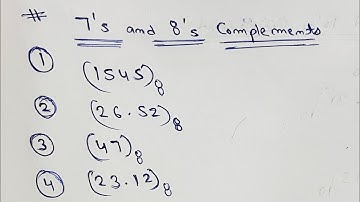 # 7's and 8's Complements
① (1545)₈
② (26.52)₈
③ (47)₈
④ (23.12)₈